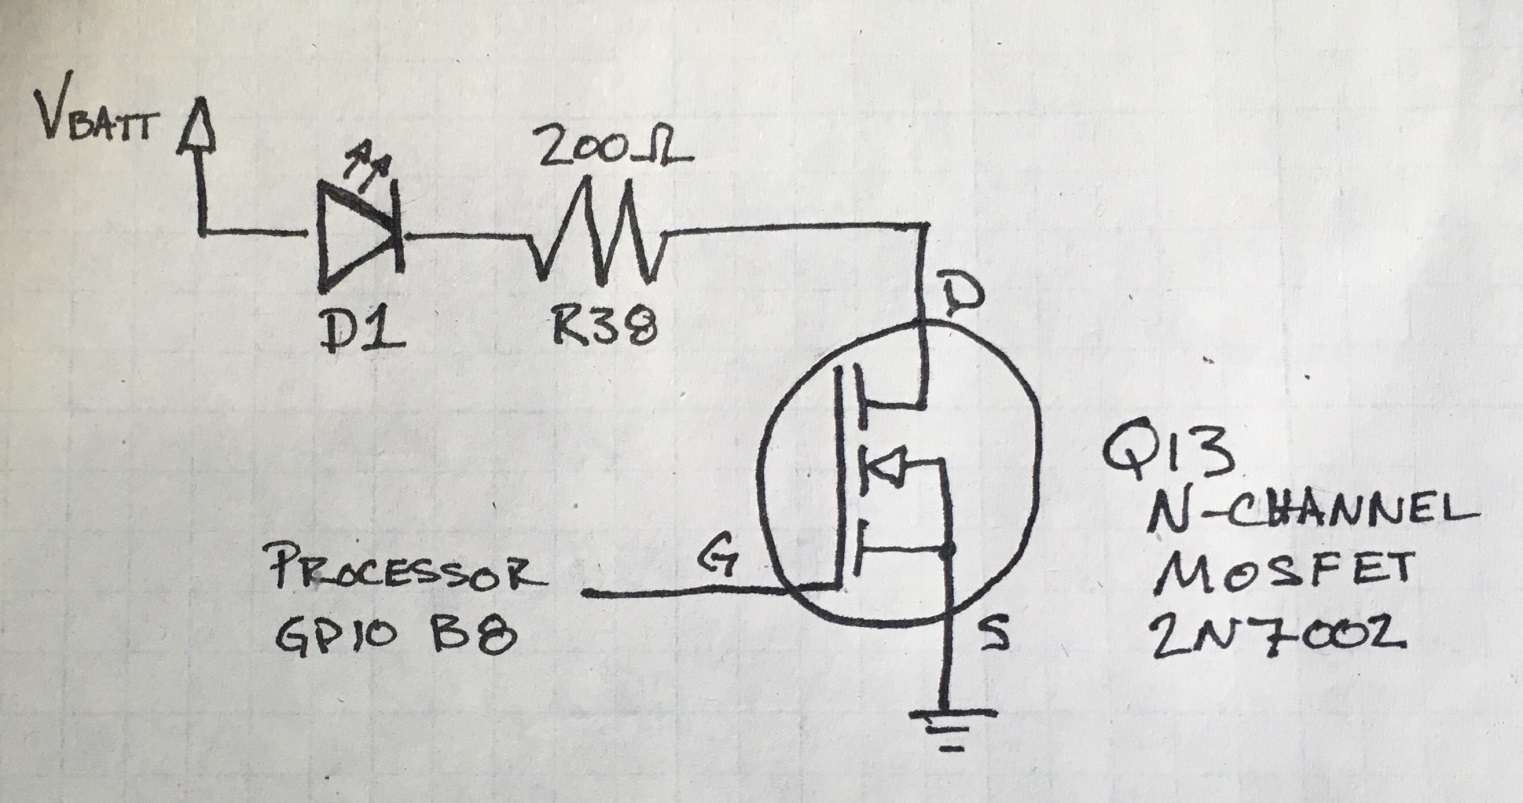 VBATT
200Ω
D1
R38
D
Q13
N-CHANNEL
MOSFET
2N7002
G
PROCESSOR
GPIO B8
S